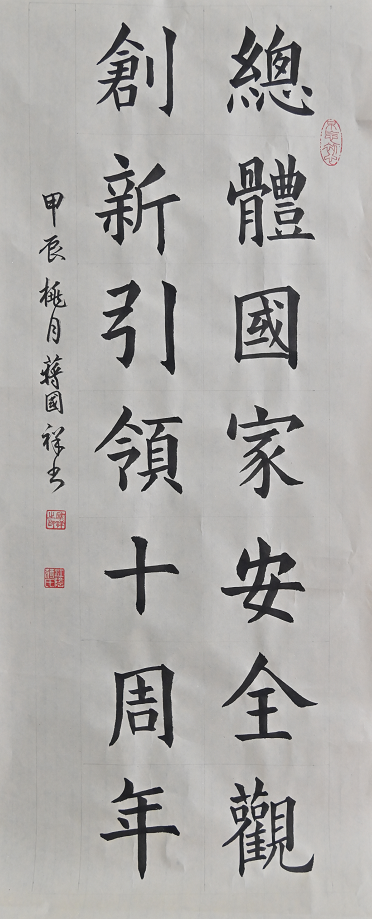 總體國家安全觀
創新引領十周年
甲辰桃月蔣國祥书